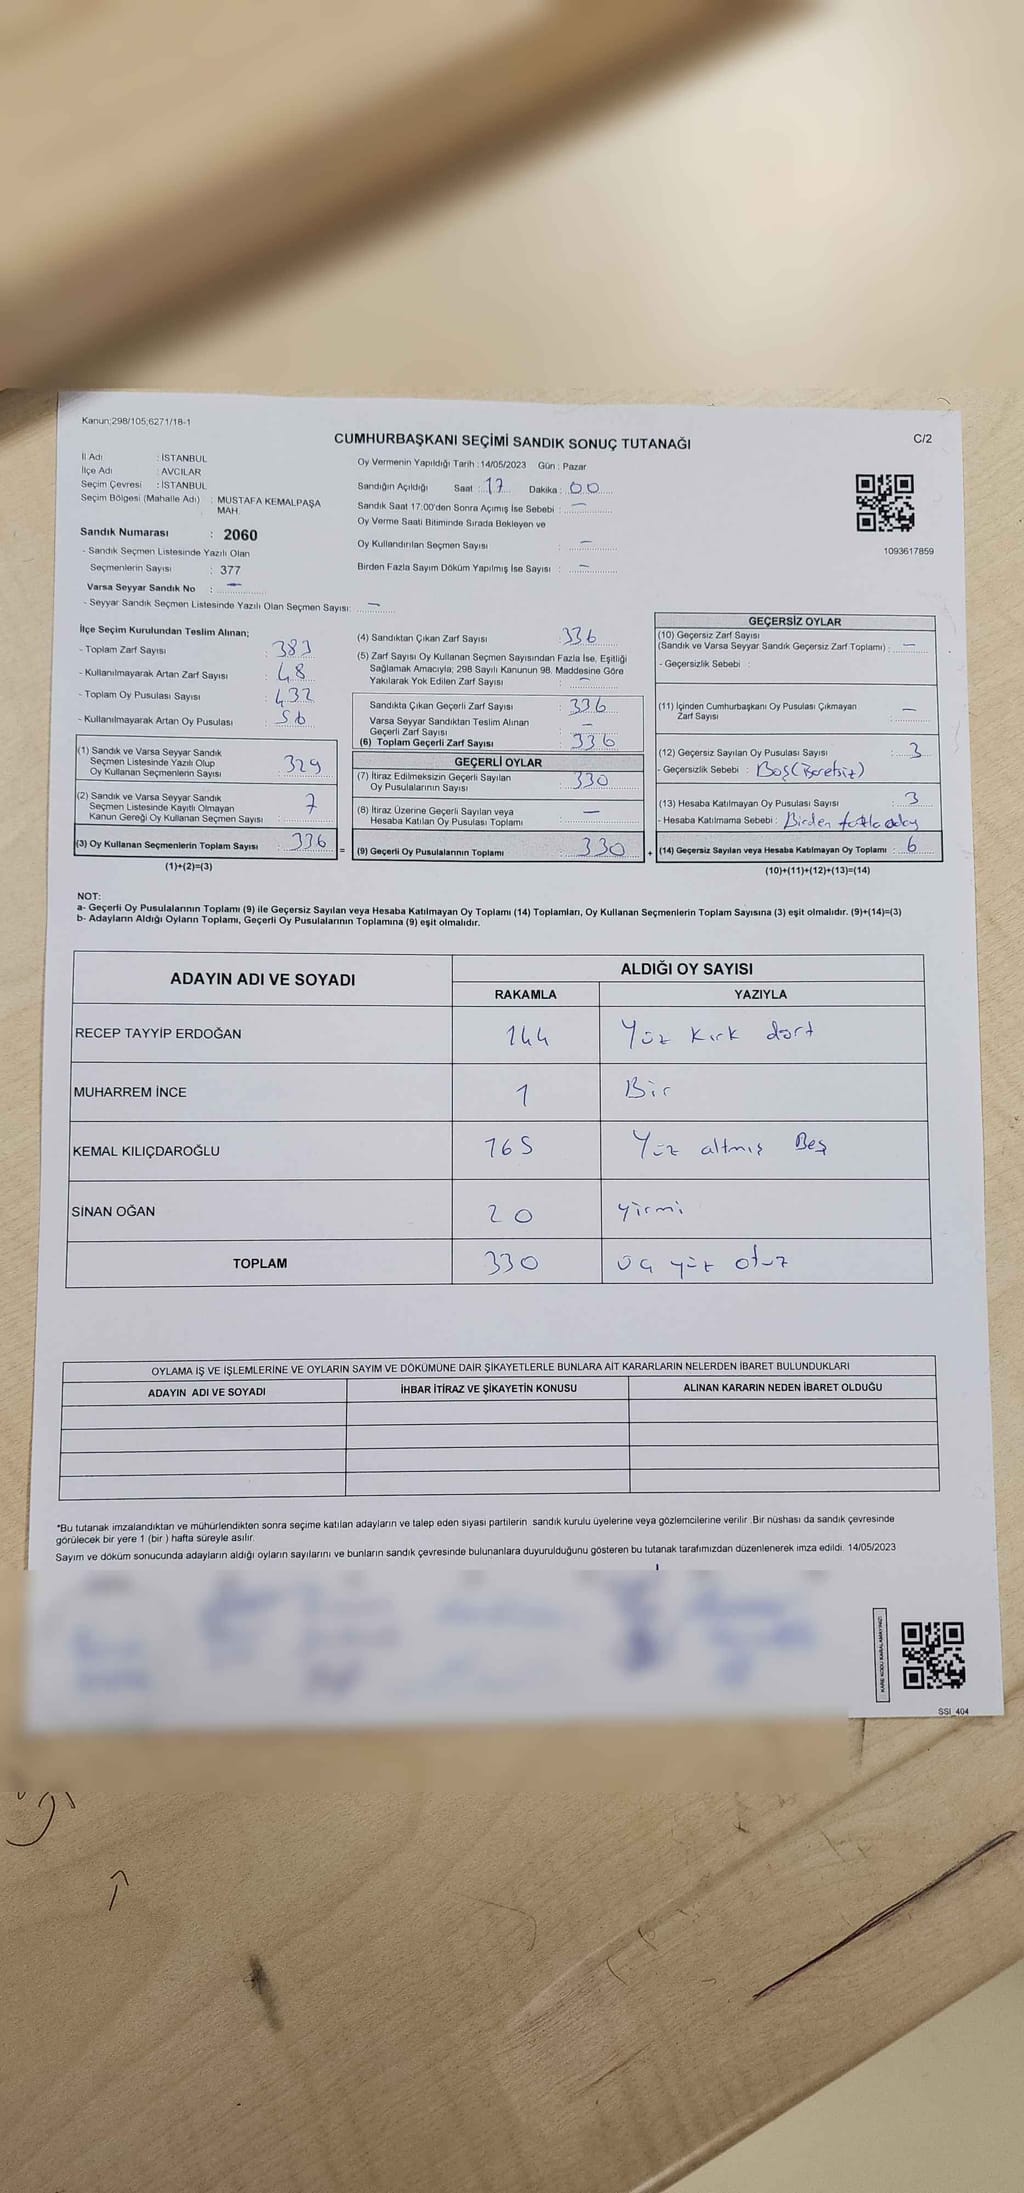 Kanun;298/105;6271/18-1
CUMHURBAŞKANI SEÇİMİ SANDIK SONUÇ TUTANAĞI
C/2
İl Adı : İSTANBUL
İlçe Adı : AVCILAR
Seçim Çevresi : İSTANBUL
Seçim Bölgesi (Mahalle Adı) : MUSTAFA KEMALPAŞA
MAH.
Sandık Numarası : 2060
- Sandık Seçmen Listesinde Yazılı Olan
Seçmenlerin Sayısı : 377
Varsa Seyyar Sandık No : —
- Seyyar Sandık Seçmen Listesinde Yazılı Olan Seçmen Sayısı: —
Oy Vermenin Yapıldığı Tarih :14/05/2023 Gün : Pazar
Sandığın Açıldığı Saat : 17 Dakika : 00
Sandık Saat 17:00'den Sonra Açımış İse Sebebi : —
Oy Verme Saati Bitiminde Sırada Bekleyen ve
Oy Kullandırılan Seçmen Sayısı : —
Birden Fazla Sayım Döküm Yapılmış İse Sayısı : —
1093617859
İlçe Seçim Kurulundan Teslim Alınan;
- Toplam Zarf Sayısı : 383
- Kullanılmayarak Artan Zarf Sayısı : 48
- Toplam Oy Pusulası Sayısı : 432
- Kullanılmayarak Artan Oy Pusulası :
(1) Sandık ve Varsa Seyyar Sandık
Seçmen Listesinde Yazılı Olup
Oy Kullanan Seçmenlerin Sayısı : 329
(2) Sandık ve Varsa Seyyar Sandık
Seçmen Listesinde Kayıtlı Olmayan
Kanun Gereği Oy Kullanan Seçmen Sayısı : 7
(3) Oy Kullanan Seçmenlerin Toplam Sayısı : 336
(1)+(2)=(3)
=
(4) Sandıktan Çıkan Zarf Sayısı : 336
(5) Zarf Sayısı Oy Kullanan Seçmen Sayısından Fazla İse, Eşitliği
Sağlamak Amacıyla; 298 Sayılı Kanunun 98. Maddesine Göre
Yakılarak Yok Edilen Zarf Sayısı : —
Sandıkta Çıkan Geçerli Zarf Sayısı : 336
Varsa Seyyar Sandıktan Teslim Alınan
Geçerli Zarf Sayısı : —
(6) Toplam Geçerli Zarf Sayısı : 336
GEÇERLİ OYLAR
(7) İtiraz Edilmeksizin Geçerli Sayılan
Oy Pusulalarının Sayısı : 330
(8) İtiraz Üzerine Geçerli Sayılan veya
Hesaba Katılan Oy Pusulası Toplamı : —
(9) Geçerli Oy Pusulalarının Toplamı : 330
+
GEÇERSİZ OYLAR
(10) Geçersiz Zarf Sayısı
(Sandık ve Varsa Seyyar Sandık Geçersiz Zarf Toplamı) : —
- Geçersizlik Sebebi :
(11) İçinden Cumhurbaşkanı Oy Pusulası Çıkmayan
Zarf Sayısı : —
(12) Geçersiz Sayılan Oy Pusulası Sayısı : 3
- Geçersizlik Sebebi : Boş(İşaretsiz)
(13) Hesaba Katılmayan Oy Pusulası Sayısı : 3
- Hesaba Katılmama Sebebi : Birden fazla aday
(14) Geçersiz Sayılan veya Hesaba Katılmayan Oy Toplamı : 6
(10)+(11)+(12)+(13)=(14)
NOT:
a- Geçerli Oy Pusulalarının Toplamı (9) ile Geçersiz Sayılan veya Hesaba Katılmayan Oy Toplamı (14) Toplamları, Oy Kullanan Seçmenlerin Toplam Sayısına (3) eşit olmalıdır. (9)+(14)=(3)
b- Adayların Aldığı Oyların Toplamı, Geçerli Oy Pusulalarının Toplamına (9) eşit olmalıdır.
ADAYIN ADI VE SOYADI
ALDIĞI OY SAYISI
RAKAMLA YAZIYLA
RECEP TAYYİP ERDOĞAN 144 Yüz kırk dört
MUHARREM İNCE 1 Bir
KEMAL KILIÇDAROĞLU 165 Yüz altmış Beş
SİNAN OĞAN 20 yirmi
TOPLAM 330 üç yüz otuz
OYLAMA İŞ VE İŞLEMLERİNE VE OYLARIN SAYIM VE DÖKÜMÜNE DAİR ŞİKAYETLERLE BUNLARA AİT KARARLARIN NELERDEN İBARET BULUNDUKLARI
ADAYIN ADI VE SOYADI İHBAR İTİRAZ VE ŞİKAYETİN KONUSU ALINAN KARARIN NEDEN İBARET OLDUĞU
*Bu tutanak imzalandıktan ve mühürlendikten sonra seçime katılan adayların ve talep eden siyasi partilerin sandık kurulu üyelerine veya gözlemcilerine verilir .Bir nüshası da sandık çevresinde
görülecek bir yere 1 (bir ) hafta süreyle asılır.
Sayım ve döküm sonucunda adayların aldığı oyların sayılarını ve bunların sandık çevresinde bulunanlara duyurulduğunu gösteren bu tutanak tarafımızdan düzenlenerek imza edildi. 14/05/2023
KARE KODU KARALAMAYINIZ!
SSI_404